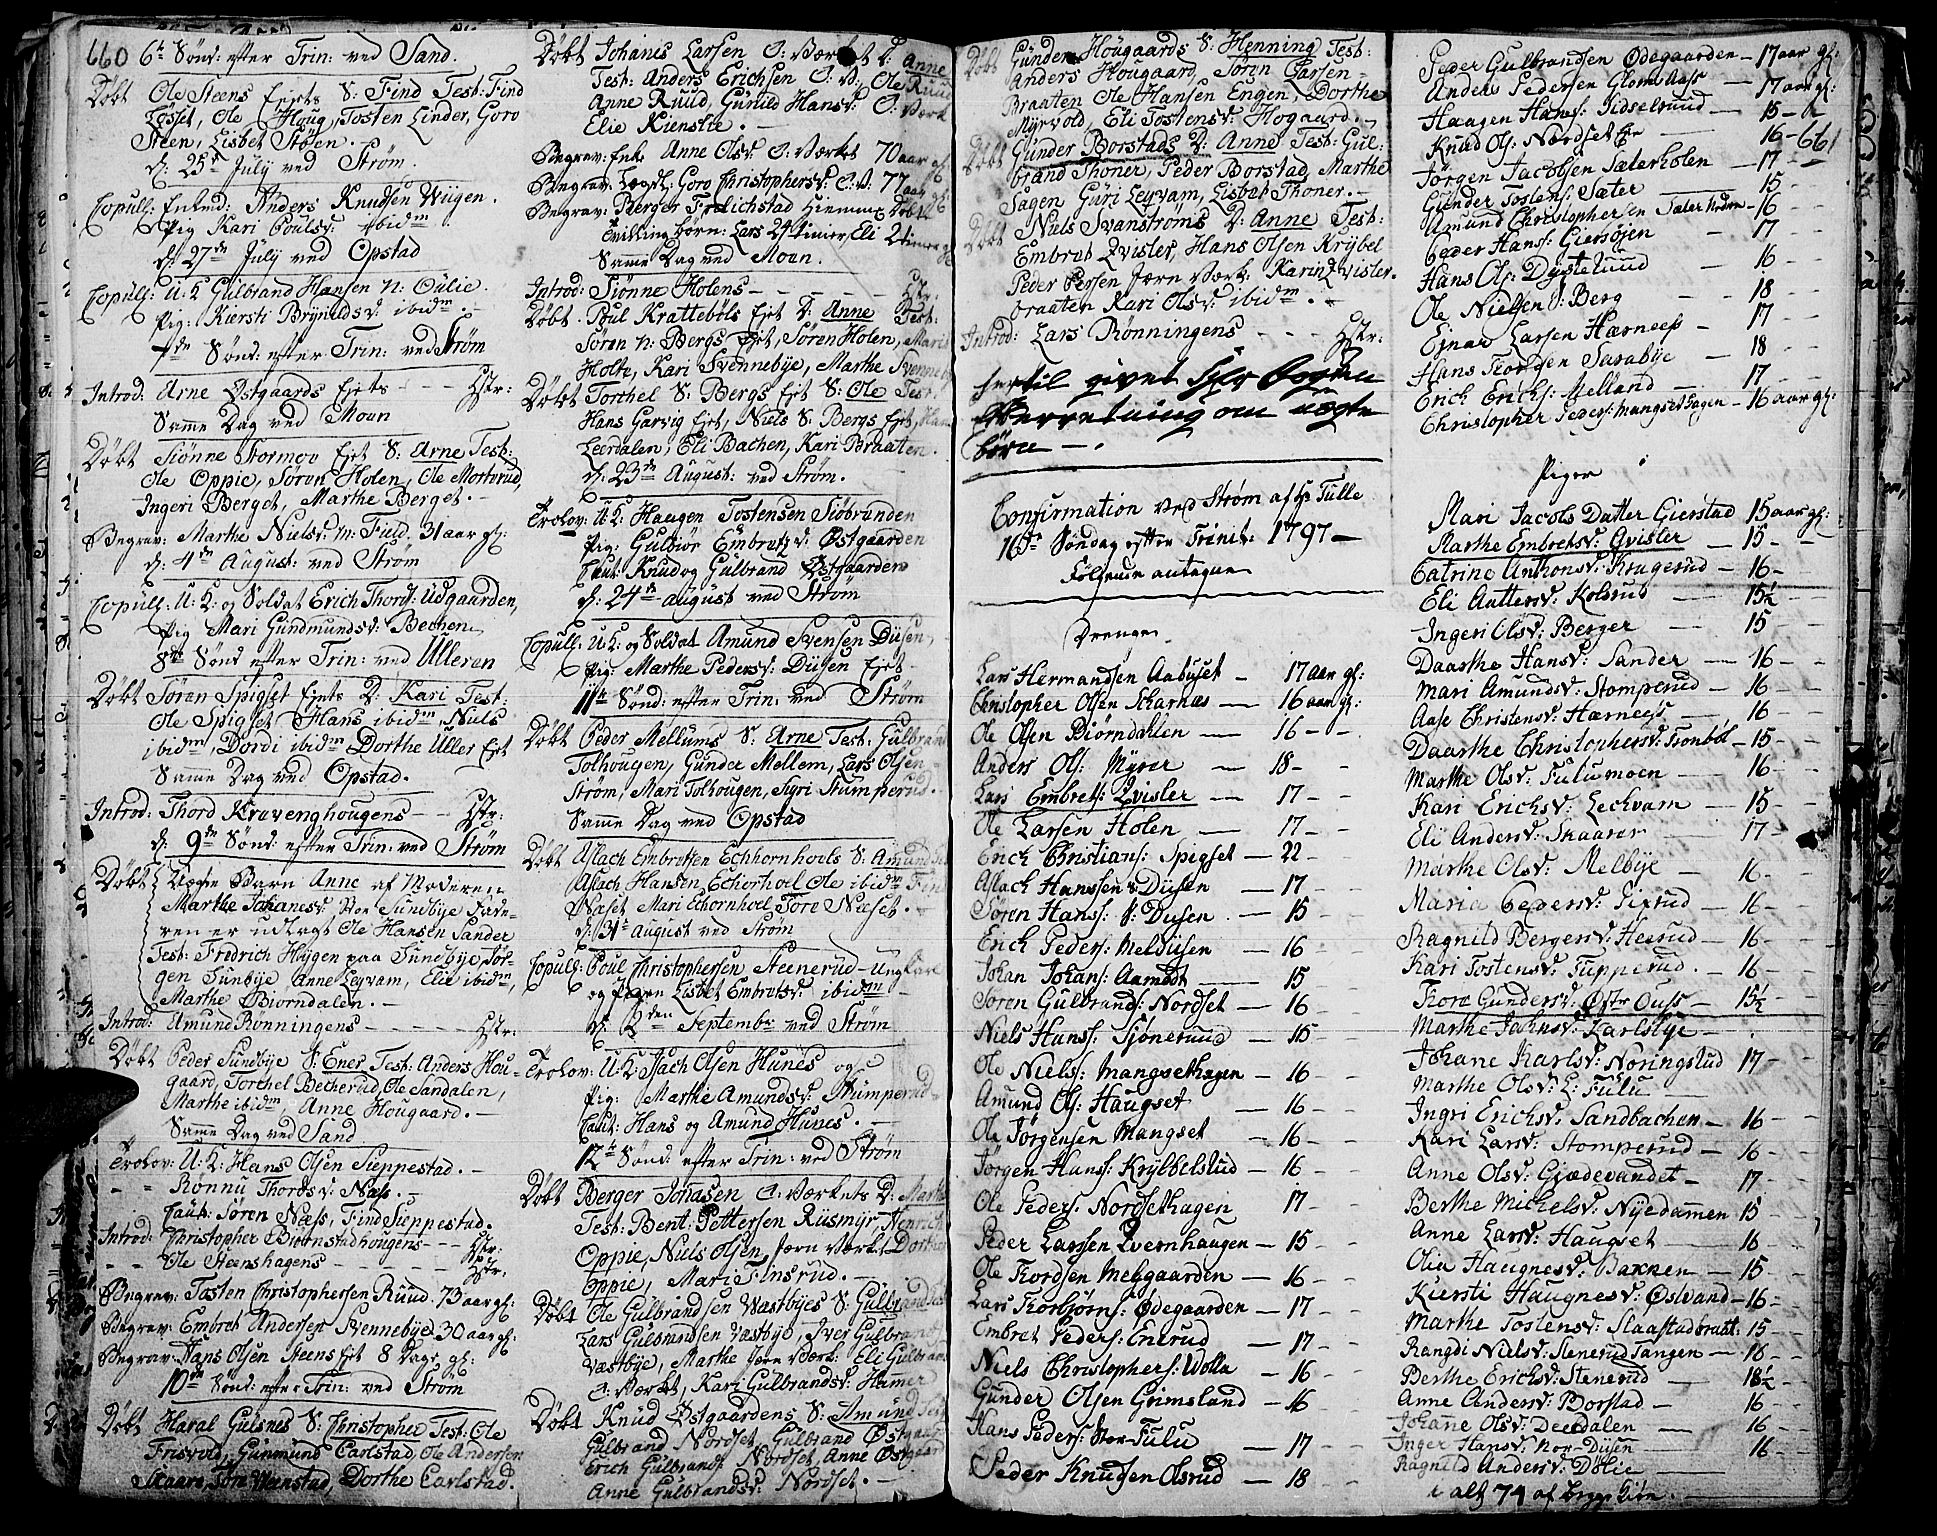 660 6te Sønd: efter Trin: ved Sand.
Døbt Ole Steens Ejets S: Find Test: Find
Løsset, Ole Houg, Tosten Linder, Goro
Steen, Lisbet Støen.
d: 25de July ved Strøm.
Copull: Enkemd: Anders Knudsen Wiigen.
Pig Kari Poulsv: ibidm
d: 27de July ved Opstad
Copull: U: K: Gulbrand Hansen n: Oulie.
Pig: Kiersti Brynilds v: ibidm
7de Sønd: efter Trin: ved Strøm
Introd: Arne Østgaards Ejets - - - Hstr:
Samme Dag ved Moan
Døbt Siønne Stormov Ejet S: Arne Test:
Ole Oppie, Søren Holen, Ole Mortvud,
Ingeri Berget, Marthe Berget.
Begrav: Marthe Nielsv: n: Fuld. 31 aar gl:
d: 4de August: ved Strøm
Copull: U: K: og Soldat Erich Thords: Udgaarden,
Pig Mari Gundmundsv: Bechen
8de Sønd efter Trin: ved Ulleren
Døbt Søren Spigset Ejets D: Kari Test:
Ole Spigset Hans ibidm, Niels
ibidm, Dordi ibidm Dorthe Uller Ejet
Samme Dag ved Opstad.
Introd: Thord Kravenghougens - - Hstr:
d: 9de Sønd: efter Trin: ved Strøm
Døbt Uægte Barn Anne af Moderen
Marthe Johanesv: Stor Sundbye Fade-
ren er udlagt Ole Hansen Sander
Test: Fredrich Høygen paa Sundbye, Jør-
gen Sunbye Anne Leyvam, Elie ibidm,
Marthe Biorndalen.
Introd: Amund Rønningens - - - - Hstr:
Døbt Peder Sundbye S: Ener Test: Anders Hou-
gaard, Torchel Becherud, Ole Sandalen,
Marthe ibidm, Anne Hougaard.
Samme Dag ved Sand
Trolov: U: K: Hans Olsen Sieppestad.
- - Rønnu Thordsv: Næss.
Caut: Søren Næss, Find Sieppestad.
Introd: Christopher Biørnstadhougens - - Hstr:
- - Ole Steenshagens - - - - Hstr.
Begrav: Tosten Christophersen Ruud. 73 aar gl:
Begrav: Embret Andersen Svennebye 30 aar gl:
Begrav: Hans Olsen Steens Ejet 8 Dage gl:
10de Sønd: efter Trin: ved Strøm
Døbt Haral Gulsnes S: Christopher Test: Ole
Frisvold, Gunmund Carlstad, Ole Andersen
Skaare, Tore Weenstad, Dorthe Carlstad.
Døbt Johanis Larsen O: Værket D: Anne
Test: Anders Erichsen O: V: Ole Ruud
Anne Ruud, Gunild Hansv: O: Værk
Elie Kienslie.
Begrav: Enke Anne Olsv: O: Værket 70 aar gl
Begrav: Lægdl: Goro Christophersv: O: V: 77 aar gl
Begrav: Berger Frelichstad Hiemme Døbte
Tvilling børn: Lars 24 timer, Eli 2 timer gl
Samme Dag ved Moan.
Introd: Siønne Holens - - - - - Hstr:
Døbt Poul Krattebøls Ejet D: Anne Test:
Søren n: Bergs Ejet, Søren Holen, Mari
Holte, Kari Svennebye, Marthe Svenneby
Døbt Torchel S: Bergs Ejet S: Ole Test:
Hans Garvig Ejet, Niels S: Bergs Ejet, Hans
Leerdalen, Eli Bachen, Kari Braaten.
d: 23de August: ved Strøm.
Trolov: U: K: Haagen Tostensen Siøbrunden
Pig: Gulbiør Embretsv: Østgaarden
Caut: Knud og Gulbrand Østgaarden
d: 24de August ved Strøm
Copull: U: K: og Soldat Amund Svensen Diisen
Pig: Marthe Pedersv: Diisen Ejet
11te Sønd: efter Trin: ved Strøm
Døbt Peder Mellums S: Arne Test: Gulbrand
Tolhougen, Gunder Mellem, Lars Olsen
Strøm, Mari Tolhougen, Sigri Stumperud.
Samme Dag ved Opstad
Døbt Aslach Embretsen Echhornhoels S: Amund
Aslach Hansen Echorhoel Ole ibidm Find
Næset Mari Echornhoel Tore Næset.
d: 31te August ved Strøm
Copull: Poul Christophersen Steenerud - Ungkarl
og Pigen Lisbet Embretsv: ibidm
d: 2den Septembr: ved Strøm
Trolov: U: K: Isach Olsen Hunes og
Pig: Marthe Amundsv: Stumperud
Caut: Hans og Amund Hunes.
12te Sønd: efter Trin: ved Strøm
Døbt Berger Jonasen O: Værkets D: Marthe
Test: Bent Pettersen Rusmyr, Henrich
Oppie, Niels Olsen, Jern Værket Dorthe
Oppie, Mari Finsrud.
Døbt Ole Gulbrandsen Væstbyes S: Gulbrand
Lars Gulbrandsen Væstbye, Iver Gulbrands
Væstbye, Marthe Jern Værk: Eli Gulbrands
O: Værket, Kari Gulbrandsv: Hamer
Døbt Knud Østgaardens S: Amund Test
Gulbrand Nordset, Gulbrand Østgaar
Erich Gulbrands: Nordset, Anne Østgaar
Anne Gulbrandsv: Nordset.
Døbt Gunder Hougaards S: Henning Test:
Anders Hougaard, Søren Larsen
Braaten Ole Hansen Engen, Dorthe
Myrvold, Eli Tostensv: Hogaard.
Døbt Gunder Borstads D: Anne Test: Gul-
brand Thoner, Peder Borstad, Marthe
Sagen Guri Leyvam, Lisbet Thoner.
Døbt Niels Svanstrøms D: Anne Test:
Embret Qvisler, Hans Olsen Krybel
Peder Persen Jærn Værk: Karin Qvisler.
braaten Kari Olsv: ibidm.
Introd: Lars Rønningens - - - Hstr:
hertil givet
om uægte
børn
Confirmation ved Strøm af Hr Tulle
16de Søndag efter Trinit: 1797
Følgende antagne
Drenge.
Lars Hermandsen Aabuset - 17 aar gl:
Christopher Olsen Skarnæs - 16 aar gl:
Ole Olsen Biørndalen - 16 -
Anders Ols: Myrer - 18 -
Lars Embrets: Qvisler - 17 -
Ole Larsen Holen - 17 -
Erich Christians: Spigset - 22 -
Aslach Hanssen v: Diisen - 17 -
Søren Hans: S: Dusen - 15
Erich Peders: Meldiisen - 16 -
Johan Johans: Aamodt - 15
Søren Gulbrands: Nordset - 16 -
Niels Hans: Sjønerud - 15 -
Ole Niels: Mangsethagen - 16 -
Amund Ols: Haugset - 16 -
Ole Jørgensen Mangset - 16 -
Jørgen Hans: Krybbelslud - 16 -
Ole Peders: Nordsethagen 17 -
Peder Larssen Qvernhaugen - 15 -
Ole Tordsen Melgaarden - 16 -
Lars Torbjørns: Ødegaarden - 17 -
Embret Peders: Enerud - 17 -
Niels Christophers: Wolla - 16 -
Gunder Olsen Grimsland - 16 -
Hans Peders: Stor-Fulu - 17 -
Peder Knudsen Olsrud - 18 -
Peder Gulbrandsen Ødegaarden - 17 aar gl:
Anders Pedersen Gloms Aass - 17 aar gl:
Haagen Hans: Sidselruud - 15 -
Knud Ols: Nordset Er - 16 - 661
Jørgen Jacobsen Sæterholen - 17 -
Gunder Tostens: Sæter - 15 -
Amund Christophersen Sæter Nedre - 16 -
Peder Hans: Giersøjen - 17 -
Hans Ols: Dystelruud - 16 -
Ole Nielsen S: Berg - 18 -
Ejnar Larsen Harnees - 17 -
Hans Tordsen Sarabye - 18 -
Erich Erichs: Melland - 17 -
Christopher Peders: Mangset Hagen - 16 aar gl:
Piger
Mari Jacobs Datter Gierstad 15 aar gl:
Marthe Embretsv: Qvisler - 15 -
Catrine Anthonsv: Krugerud - 16 -
Eli Auttersv: Kolsrud - 15½ -
Ingeri Olsv: Berger - 15 -
Daarthe Hansv: Sander - 16 -
Mari Amundsv: Stomperud - 16 -
Aase Christensv: Harnees - 16 -
Daarthe Christophersv: Tronbøl - 15 -
Marthe Olsv: Fulumoen - 16 -
Kari Erichsv: Leckvam - 15 -
Eli Andersv: Skaarer - 17 -
Marthe Olsv: Melbye - 16 -
Maria Pedersv: Sixrud - 16 -
Ragnild Bergersv: Heerud - 16 -
Kari Tostensv: Tupperud. - 16 -
Tora Gundersv: Østr Ouss - 15½ -
Marthe Johnsv: Karlsbye - -
Johane Karlsv: Noringslud 17 -
Marthe Olsv: L: Fulu -
Ingri Erichsv: Sandbachen - 16 -
Kari Larsv: Stomperud - 16 -
Anne Olsv: Giædevandet - 17 -
Berthe Michelsv: Nyedamen 15 -
Anne Larsv: Haugset - 16 -
Olia Haugnesv: Bakken - 15 -
Kiersti Haugnesv: Østvand - 16 -
Marthe Tostensv: Slaastadbraat: 15 -
Rangdi Nielsv: Stenerud Tangen - 16 -
Berthe Erichsv: Stenerud - 18½ -
Anne Andersv: Borstad - 16 -
Johanne Olsv: Deerdalen - 16 -
Inger Hansv: Nor-Diisen - 16 -
Ragnild Andersv: Dølie -
i alt 74 af begge Kiøn.